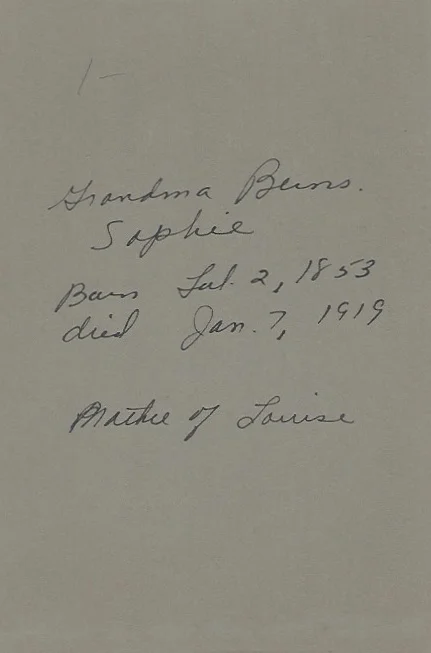 1-
Grandma Beins.
Sophie
Born Jul. 2, 1853
died Jan. 7, 1919
Mother of Louise